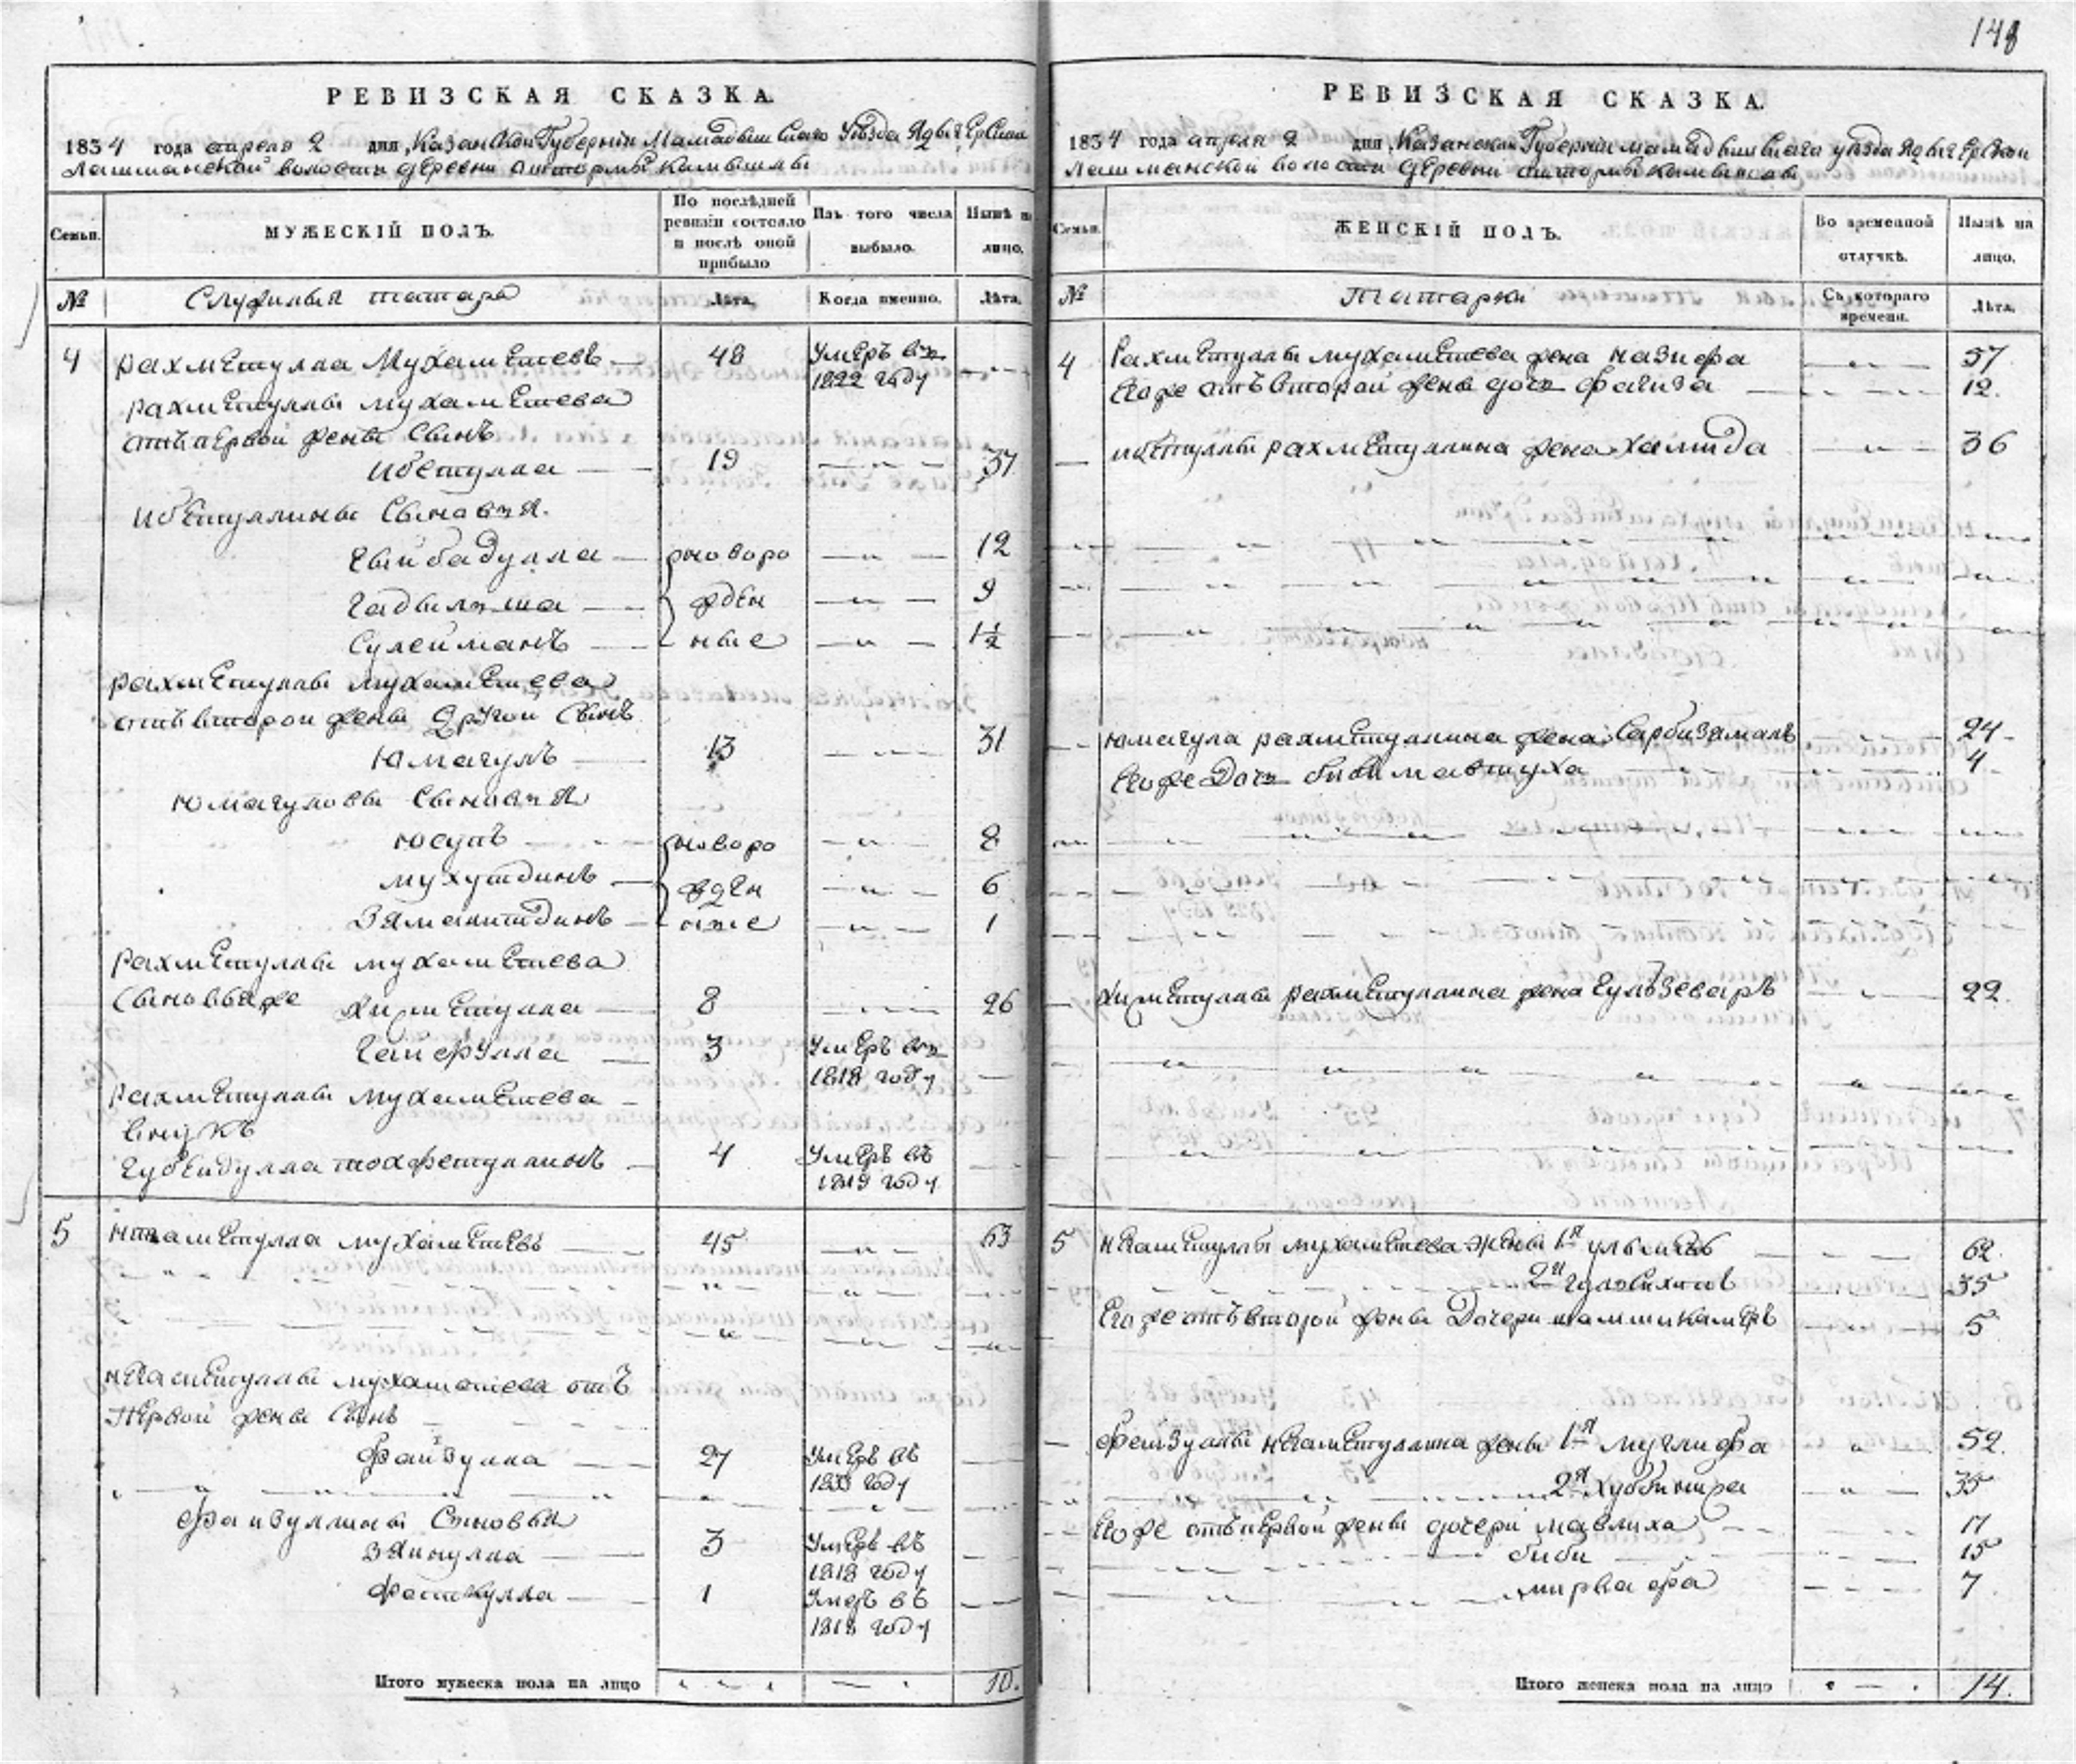 148
РЕВИЗСКАЯ СКАЗКА.
1834 года апреля 2 дня, Казанской Губерніи Мамадышскаго Уѣзда
Лашманской волости деревни Камышлы
Семьи.
МУЖЕСКІЙ ПОЛЪ.
По послѣдней ревизіи состояло и послѣ оной прибыло
Изъ того числа выбыло.
Нынѣ на лицо.
№
Служилыя татара
Лѣта.
Когда именно.
Лѣта.
4 Рахметулла Мухаметевъ — 48 Умеръ въ
1822 году
Рахметуллы Мухаметева
отъ первой жены Сынъ
Ибетулла — 19 — „ — 37
Ибетуллины Сыновья.
Гыйбадулла — новоро — „ — 12
— жден — „ — 9
Сулейманъ — ные — „ — 1½
Рахметуллы Мухаметева
отъ второй жены другой Сынъ
Юмагулъ — 13 — — — 31
Юмагуловы Сыновья
Юсупъ новоро — „ — 8
Мухутдинъ — жден — „ — 6
Зямалитдинъ — ные — „ — 1
Рахметуллы Мухаметева
Сыновья же Химетулла — 8 26
3 Умеръ въ
1818 году
Рахметуллы Мухаметева
внукъ
4 Умеръ въ
1819 году
5 Нигаметулла Мухаметевъ — 45 — „ — 63
Нигаметуллы Мухаметева отъ
Первой жены Сынъ
Файзулла — 27 Умеръ въ
1833 году
Файзуллины Сыновья
Зяйнулла — 3 Умеръ въ
1818 году
1 Умеръ въ
1818 году
Итого мужеска пола на лицо 10.
РЕВИЗСКАЯ СКАЗКА.
1834 года апреля 2 дня, Казанской Губерніи Мамадышскаго уѣзда
Лашманской волости деревни Камышлы
Семьи.
ЖЕНСКІЙ ПОЛЪ.
Во временной отлучкѣ.
Нынѣ на лицо.
№
Татарки
Съ котораго времени.
Лѣта.
4 Рахметуллы Мухаметева жена Назифа — „ — 57
Егоже отъ второй жены дочь Фагиза 12.
Ибетуллы Рахметуллина жена Хамида — „ — 36
Юмагула Рахметуллина жена Сарбизямалъ 24
Егоже Дочь Биби 4
Химетуллы Рахметуллина жена Гульзеваръ 22.
5 Нигаметуллы Мухаметева жены 1я 62.
2я 35
Егоже отъ второй жены Дочери Шамшикамеръ 5
Фейзуллы Нигаметуллина жены 1я Муглифа „ 52.
2я 35
Егоже отъ первой жены дочери Мавлиха 17
биби 15
7
Итого женска пола на лицо 14.